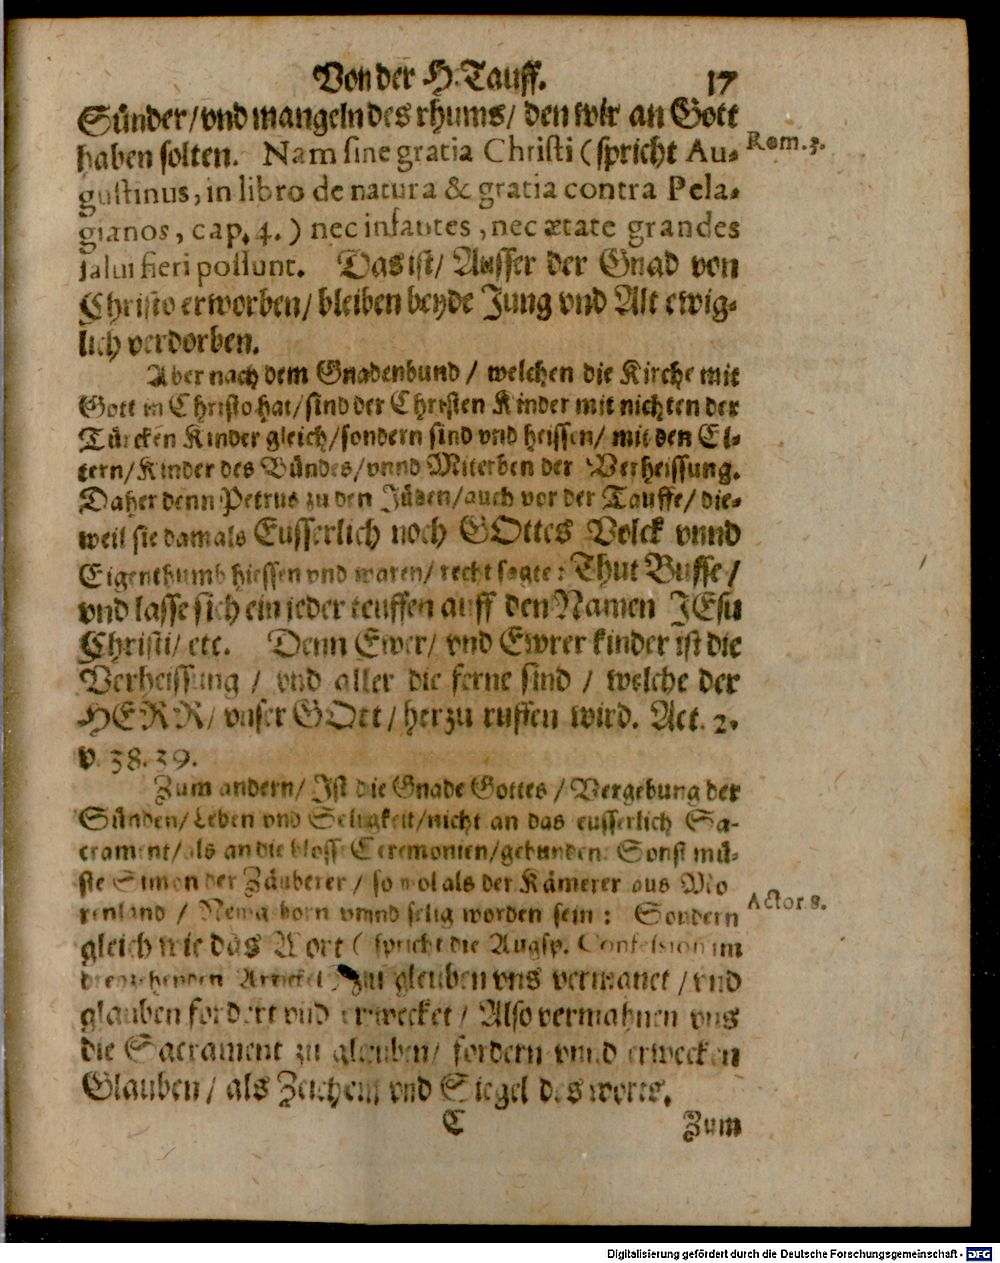 Von der H. Tauff. 17
Sünder/vnd mangeln des rhums/ den wir an Gott
haben solten. Nam sine gratia Christi (spricht Au- Rom. 3.
gustinus, in libro de natura & gratia contra Pela-
gianos, cap. 4.) nec infantes, nec ætate grandes
salui fieri possunt. Das ist/ Ausser der Gnad von
Christo erworben/ bleiben beyde Jung vnd Alt ewig-
lich verdorben.
Aber nach dem Gnadenbund / welchen die Kirche mit
Gott in Christo hat/ sind der Christen Kinder mit nichten der
Türcken Kinder gleich/sondern sind vnd heissen/ mit den El-
tern/Kinder des Bündes/vnnd Miterben der Verheissung.
Daher denn Petrus zu den Jüden/auch vor der Tauffe/ die-
weil sie damals Eusserlich noch GOttes Volck vnnd
Eigenthumb hiessen vnd waren/ recht sagte: Thut Busse /
vnd lasse sich ein jeder teuffen auff den Namen JEsu
Christi/ etc. Denn Ewer/ vnd Ewrer kinder ist die
Verheissung / vnd aller die ferne sind / welche der
HERR/ vnser GOtt / herzu ruffen wird. Act. 2.
v. 38. 39.
Zum andern/ Ist die Gnade Gottes / Vergebung der
Sünden/ Leben vnd Seligkeit/nicht an das eusserlich Sa-
crament/als an die blosse Ceremonien/gebunden. Sonst mü-
ste Simon der Zäuberer / so wol als der Kämerer aus Mo
renland / New geborn vnnd selig worden sein: Sondern Actor 8.
gleich wie das Wort ( spricht die Augsp. Confession im
dreyzehenden Artickel) zu gleuben vns vermanet / vnd
glauben fordert vnd erwecket / Also vermahnen vns
die Sacrament zu gleuben/ fordern vnnd erwecken
Glauben / als Zeichen vnd Siegel des worts.
C Zum
Digitalisierung gefördert durch die Deutsche Forschungsgemeinschaft - DFG